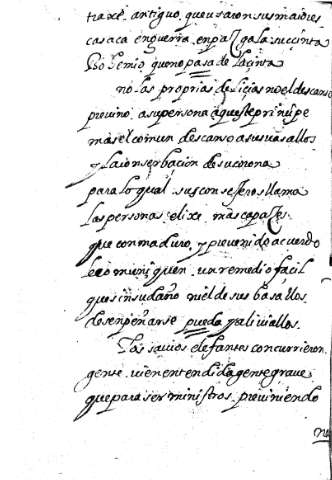 traxe antiguo, que usaron sus maiores
casaca en guerra, en paz gala sucçinta
Bohemio que no pasa de la çinta
no las proprias deliçias no el descanso
previno a su persona aqueste prinçipe
mas el comun descanso a sus vasallos
y la conserbaçion de su corona
para lo qual sus consejeros llama
las personas elixe mas capazes
que con maduro, y prevenido acuerdo
le comuniquen un remedio façil
que sin su daño ni el de sus basallos
desenpeñarse pueda y aliviallos.
Los savios elefantes concurrieron
gente vien entendida gente grave
que para ser ministros previniendo